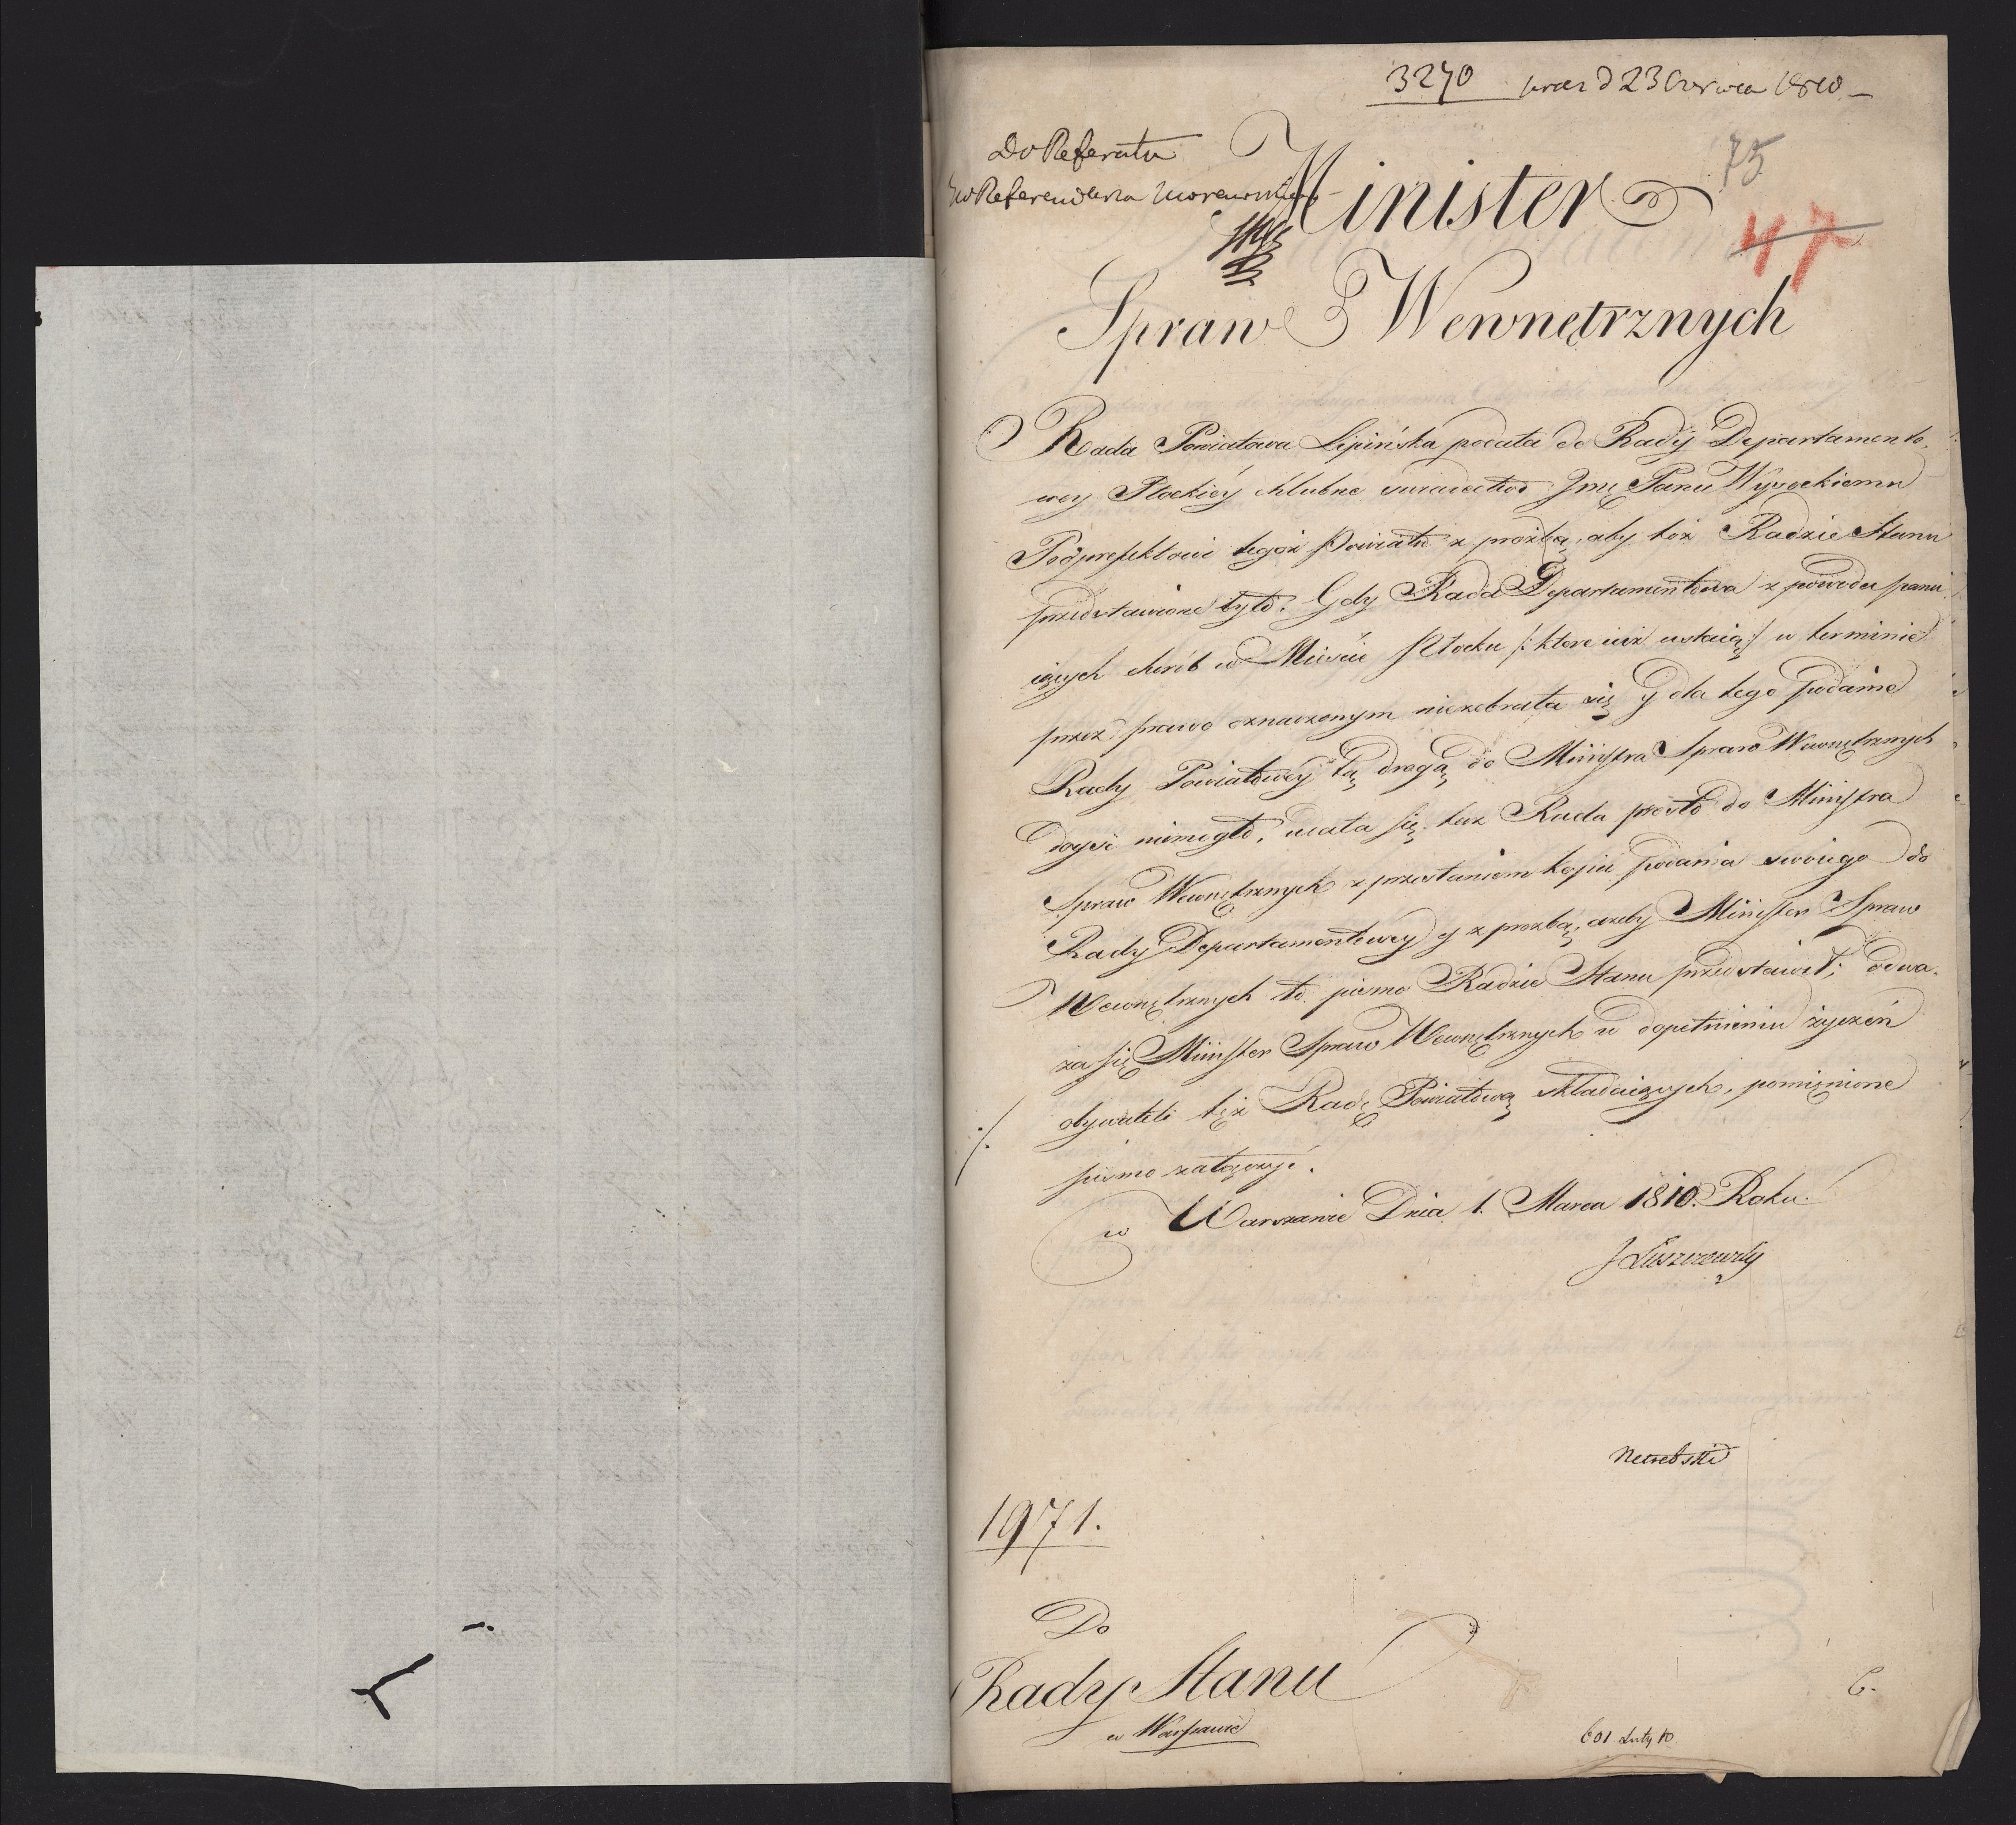 3270 prez d 23 Czerwca 1810 –
Do Referatu
JW Referendarza
75
Minister
47
Spraw Wewnętrznych
Rada Powiatowa Lipińska podała do Rady Departamento-
wey Płockiéy chlubne swiadectwo Jmę Panu Wysockiemu
Podprefektowi tegoż Powiatu z prożbą, aby toż Radzie Stanu
przedstawione było. Gdy Rada Departamentowa z powodu panu-
iących chorób w Mieście Płocku /: które iuż ustaią :/ w terminie
przez prawo oznaczonym niezebrała się y dla tego podanie
Rady Powiatowey tą drogą do Ministra Spraw Wewnętrznych
doyść niemogło, udała się taż Rada prosto do Ministra
Spraw Wewnętrznych z przesłaniem kopii podania swoiego do
Rady Departamentowey y z prozbą, azeby Minister Spraw
Wewnętrznych to pismo Radzie Stanu przedstawił; odwa-
ża się Minister Spraw Wewnętrznych w dopełnieniu życzeń
obywateli też Radę Powiatową składaiących, pomienione
./. pismo załączyć.
w Warszawie Dnia 1. Marca 1810. Roku.
J Łuszczewski
Netrebski
1971.
Do
Rady Stanu
w Warszawie
6.
601 Luty 10